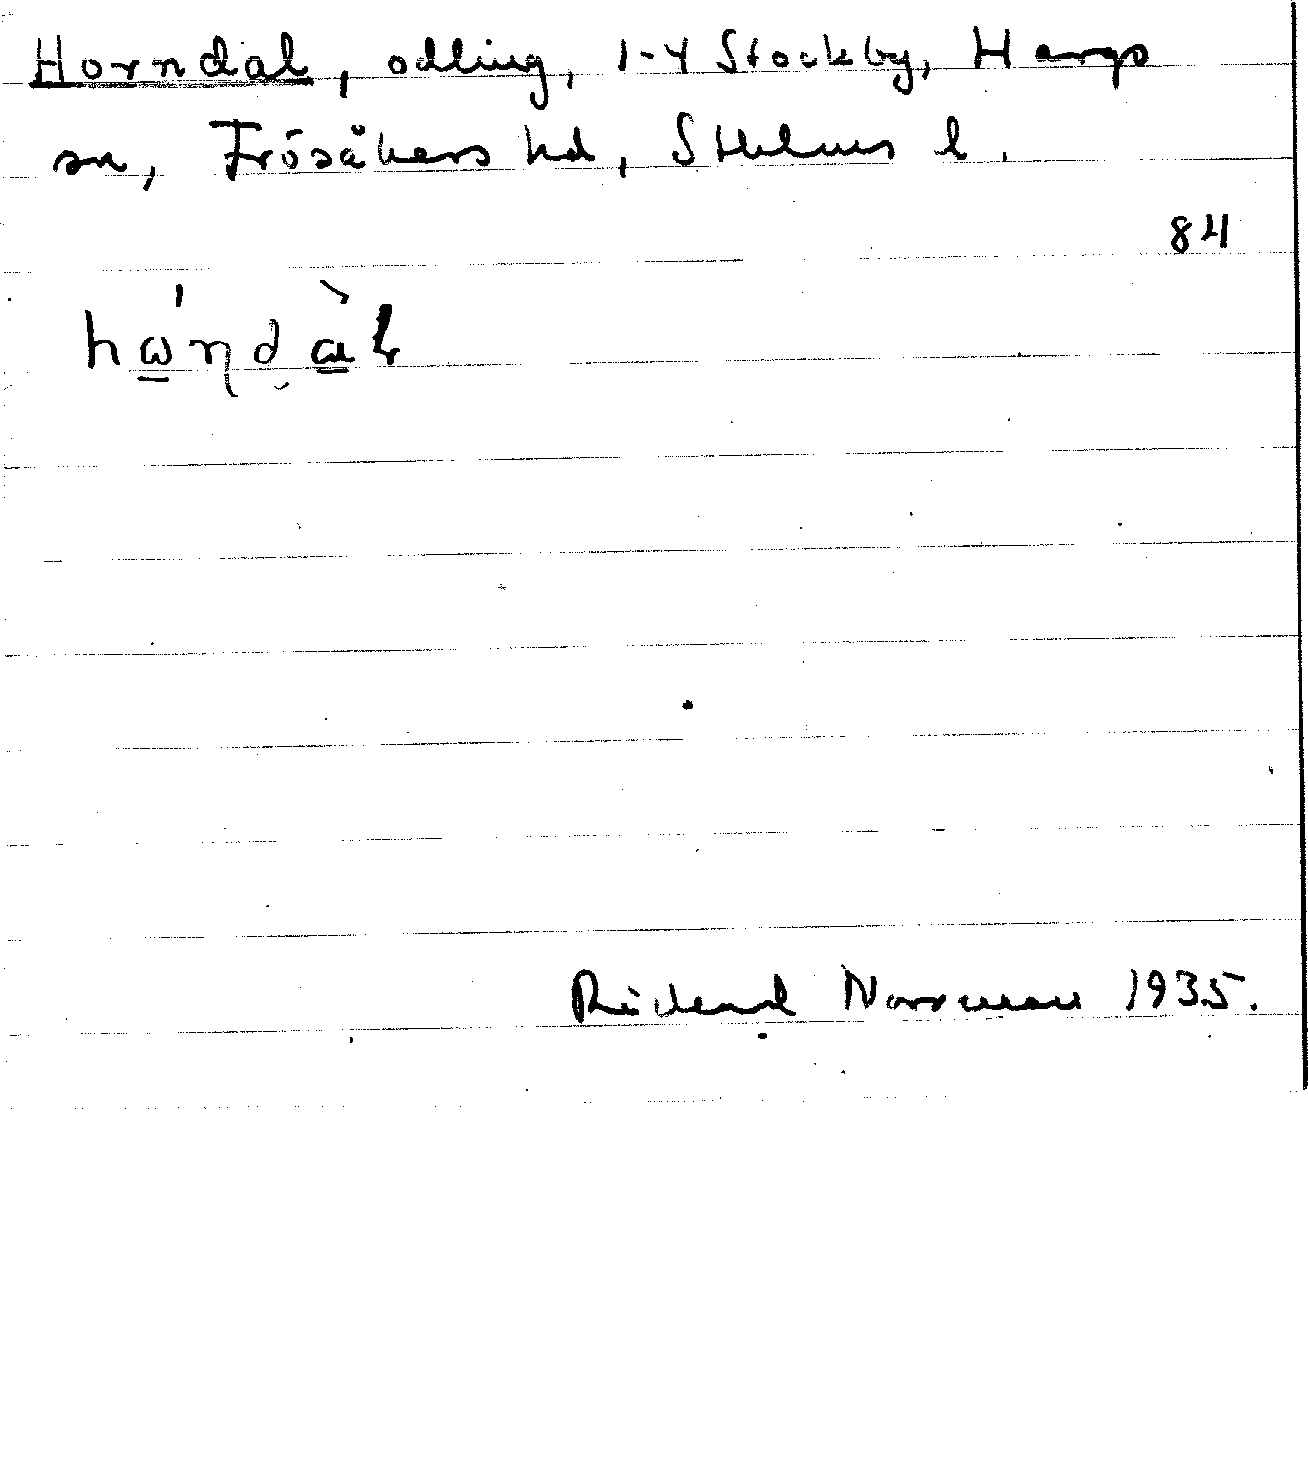 Horndal, odling, 1-4 Stockby, Hargs
sn, Frösåkers hd, Sthlms l.
84
Rickard Norrman 1935.